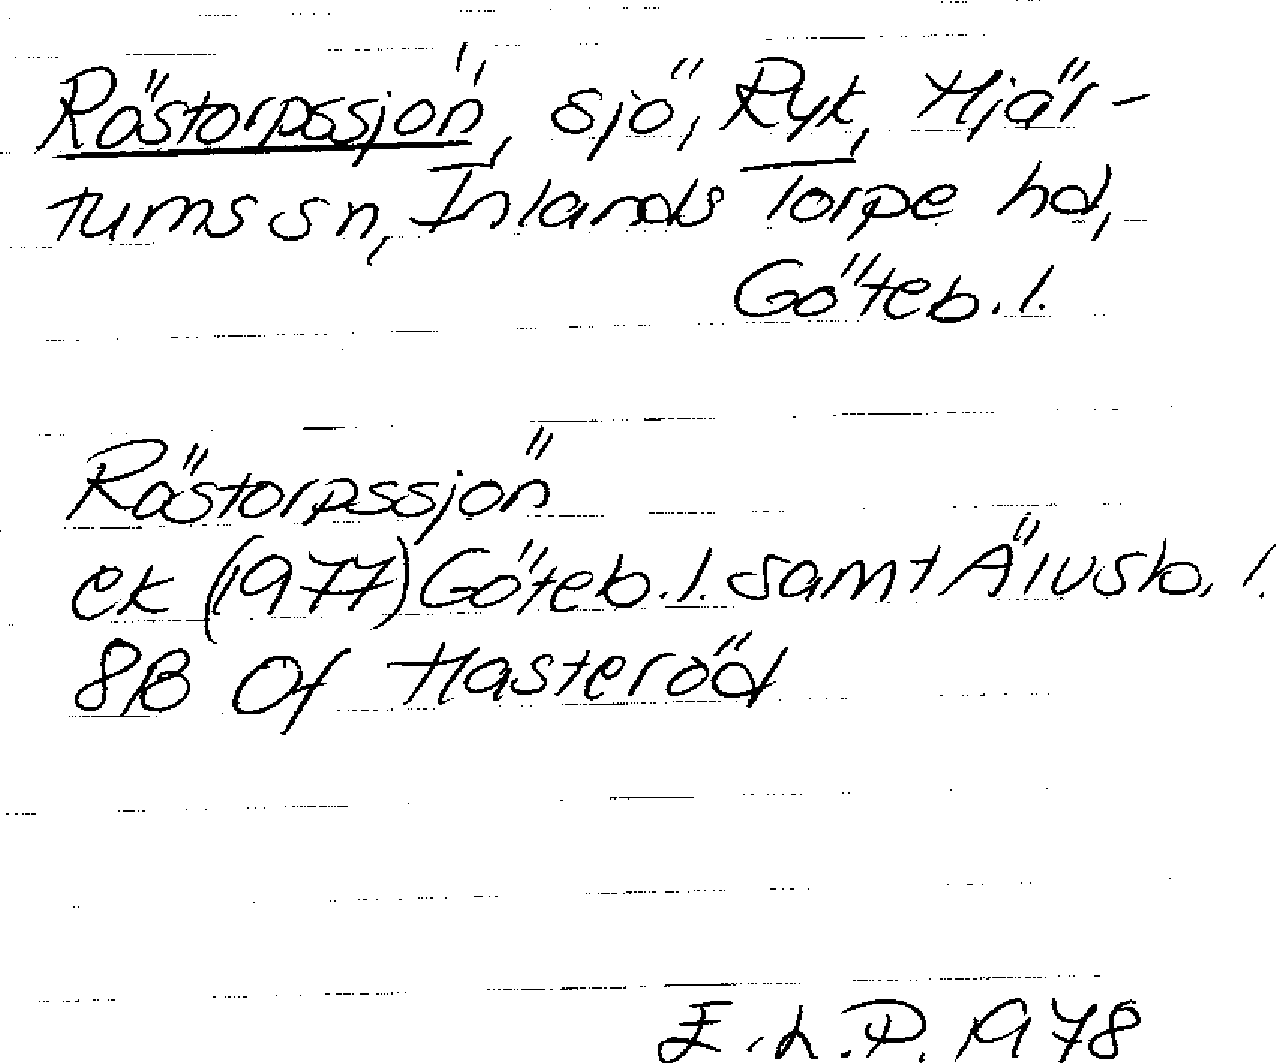 Rästorpssjön, sjö, Ryk, Hjär-
tums sn, Inlands Torpe hd,
Göteb. l.
Rästorpssjön
ek (1977) Göteb. l. samt Älvsb. l.
8B 0f Hasteröd
E. L. P. 1978